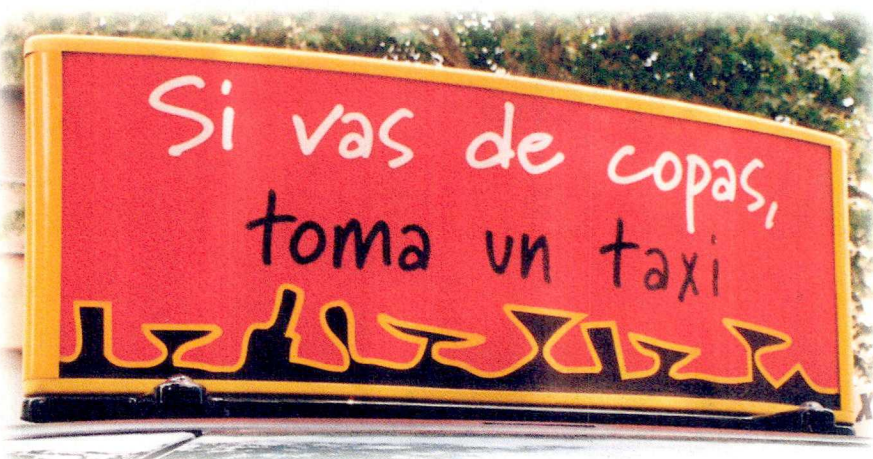 Si vas de copas,
toma un taxi